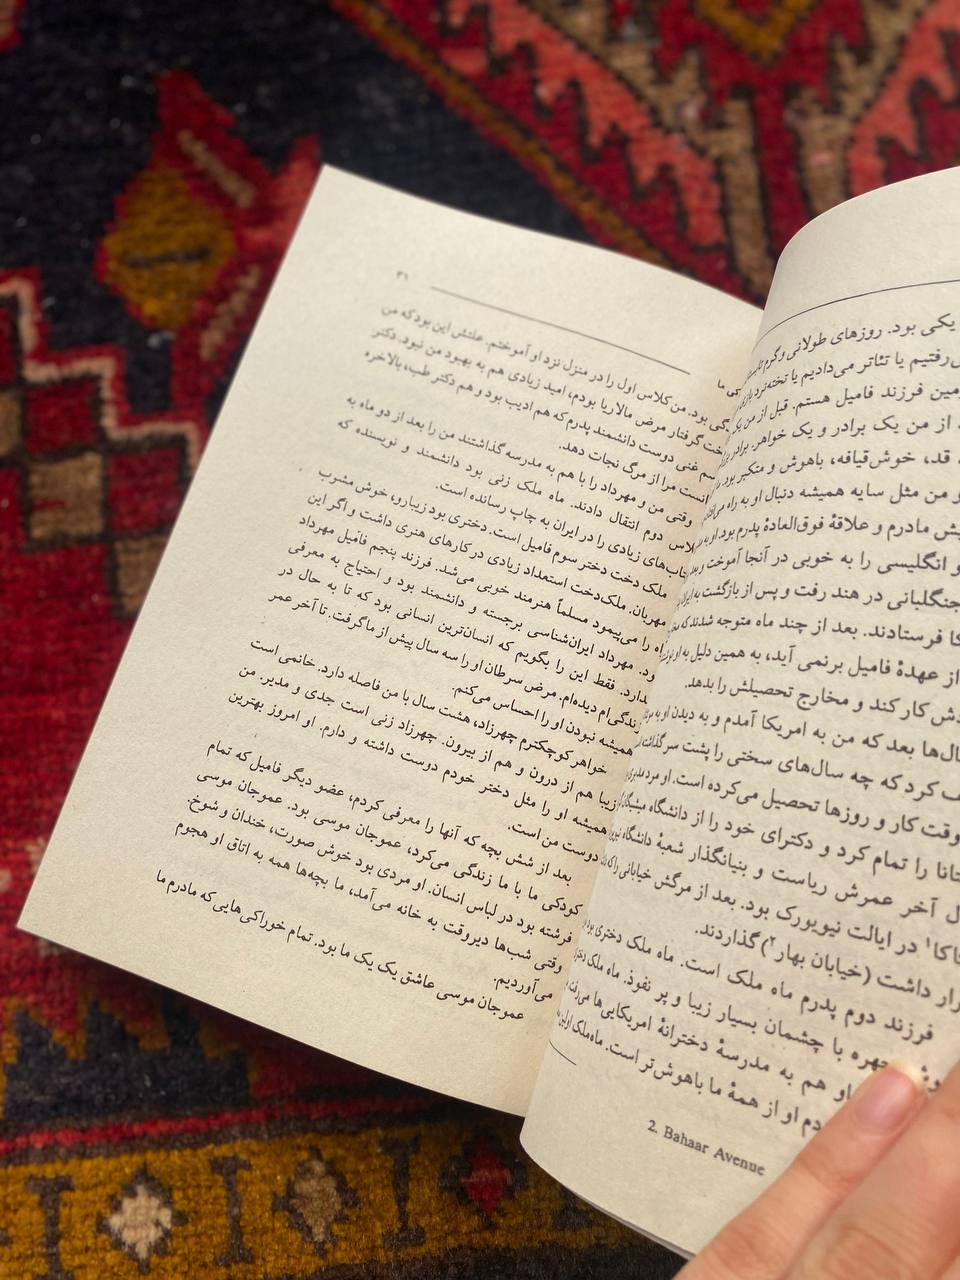 یکی بود. روزهای طولانی و گرم
رفتیم یا تئاتر می‌دادیم یا تخته‌نرد
مین فرزند فامیل هستم. قبل از من یک
از من یک برادر و یک خواهر. برادر
قد، خوش‌قیافه، باهوش و متکبر بود.
و من مثل سایه همیشه دنبال او به راه
یش مادرم و علاقهٔ فوق‌العادهٔ پدرم بود. او به
و انگلیسی را به خوبی در آنجا آموخت و بعد
جنگلبانی در هند رفت و پس از بازگشت به ایران
کا فرستادند. بعد از چند ماه متوجه شدند که
از عهدهٔ فامیل برنمی آید، به همین دلیل به او
دش کار کند و مخارج تحصیلش را بدهد.
ال‌ها بعد که من به امریکا آمدم و به دیدن او به
ف کرد که چه سال‌های سختی را پشت سر گذاشته
وقت کار و روزها تحصیل می‌کرده است. او مرد
تانا را تمام کرد و دکترای خود را از دانشگاه میشیگان
ل آخر عمرش ریاست و بنیانگذار شعبهٔ دانشگاه
کاکا۱ در ایالت نیویورک بود. بعد از مرگش خیابانی را که
رار داشت (خیابان بهار۲) گذاردند.
فرزند دوم پدرم ماه ملک است. ماه ملک دختری بود
چهره با چشمان بسیار زیبا و پر نفوذ. ماه ملک
او هم به مدرسهٔ دخترانهٔ امریکایی‌ها می‌رفت
دم او از همهٔ ما باهوش‌تر است. ماه‌ملک اولین
2. Bahaar Avenue
۳۱
ما
گی بود. من کلاس اول را در منزل نزد او آموختم. علتش این بود که من
خت گرفتار مرض مالاریا بودم، امید زیادی هم به بهبود من نبود. دکتر
سم غنی دوست دانشمند پدرم که هم ادیب بود و هم دکتر طب، بالاخره
انست مرا از مرگ نجات دهد.
وقتی من و مهرداد را با هم به مدرسه گذاشتند من را بعد از دو ماه به
لاس دوم انتقال دادند. ماه ملک زنی بود دانشمند و نویسنده که
تاب‌های زیادی را در ایران به چاپ رسانده است.
ملک دخت دختر سوم فامیل است. دختری بود زیبارو، خوش مشرب
مهربان. ملک‌دخت استعداد زیادی در کارهای هنری داشت و اگر این
اه را می‌پیمود مسلماً هنرمند خوبی می‌شد. فرزند پنجم فامیل مهرداد
ود. مهرداد ایران‌شناسی برجسته و دانشمند بود و احتیاج به معرفی
دارد. فقط این را بگویم که انسان‌ترین انسانی بود که تا به حال در
زندگی‌ام دیده‌ام. مرض سرطان او را سه سال پیش از ما گرفت. تا آخر عمر
همیشه نبودن او را احساس می‌کنم.
خواهر کوچکترم چهرزاد، هشت سال با من فاصله دارد. خانمی است
زیبا هم از درون و هم از بیرون. چهرزاد زنی است جدی و مدیر. من
همیشه او را مثل دختر خودم دوست داشته و دارم. او امروز بهترین
دوست من است.
بعد از شش بچه که آنها را معرفی کردم، عضو دیگر فامیل که تمام
کودکی ما با ما زندگی می‌کرد، عموجان موسی بود. عموجان موسی
فرشته بود در لباس انسان. او مردی بود خوش صورت، خندان و شوخ.
وقتی شب‌ها دیروقت به خانه می‌آمد، ما بچه‌ها همه به اتاق او هجوم
می‌آوردیم.
عموجان موسی عاشق یک یک ما بود. تمام خوراکی‌هایی که مادرم ما